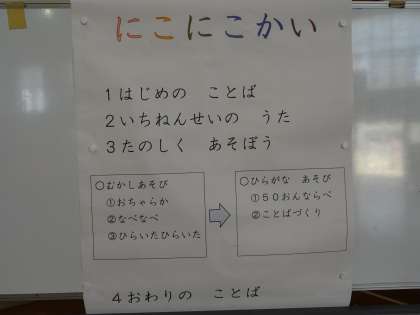 にこにこかい
1はじめの ことば
2いちねんせいの うた
3たのしく あそぼう
○むかしあそび
①おちゃらか
②なべなべ
③ひらいたひらいた
○ひらがな あそび
①50おんならべ
②ことばづくり
4おわりの ことば